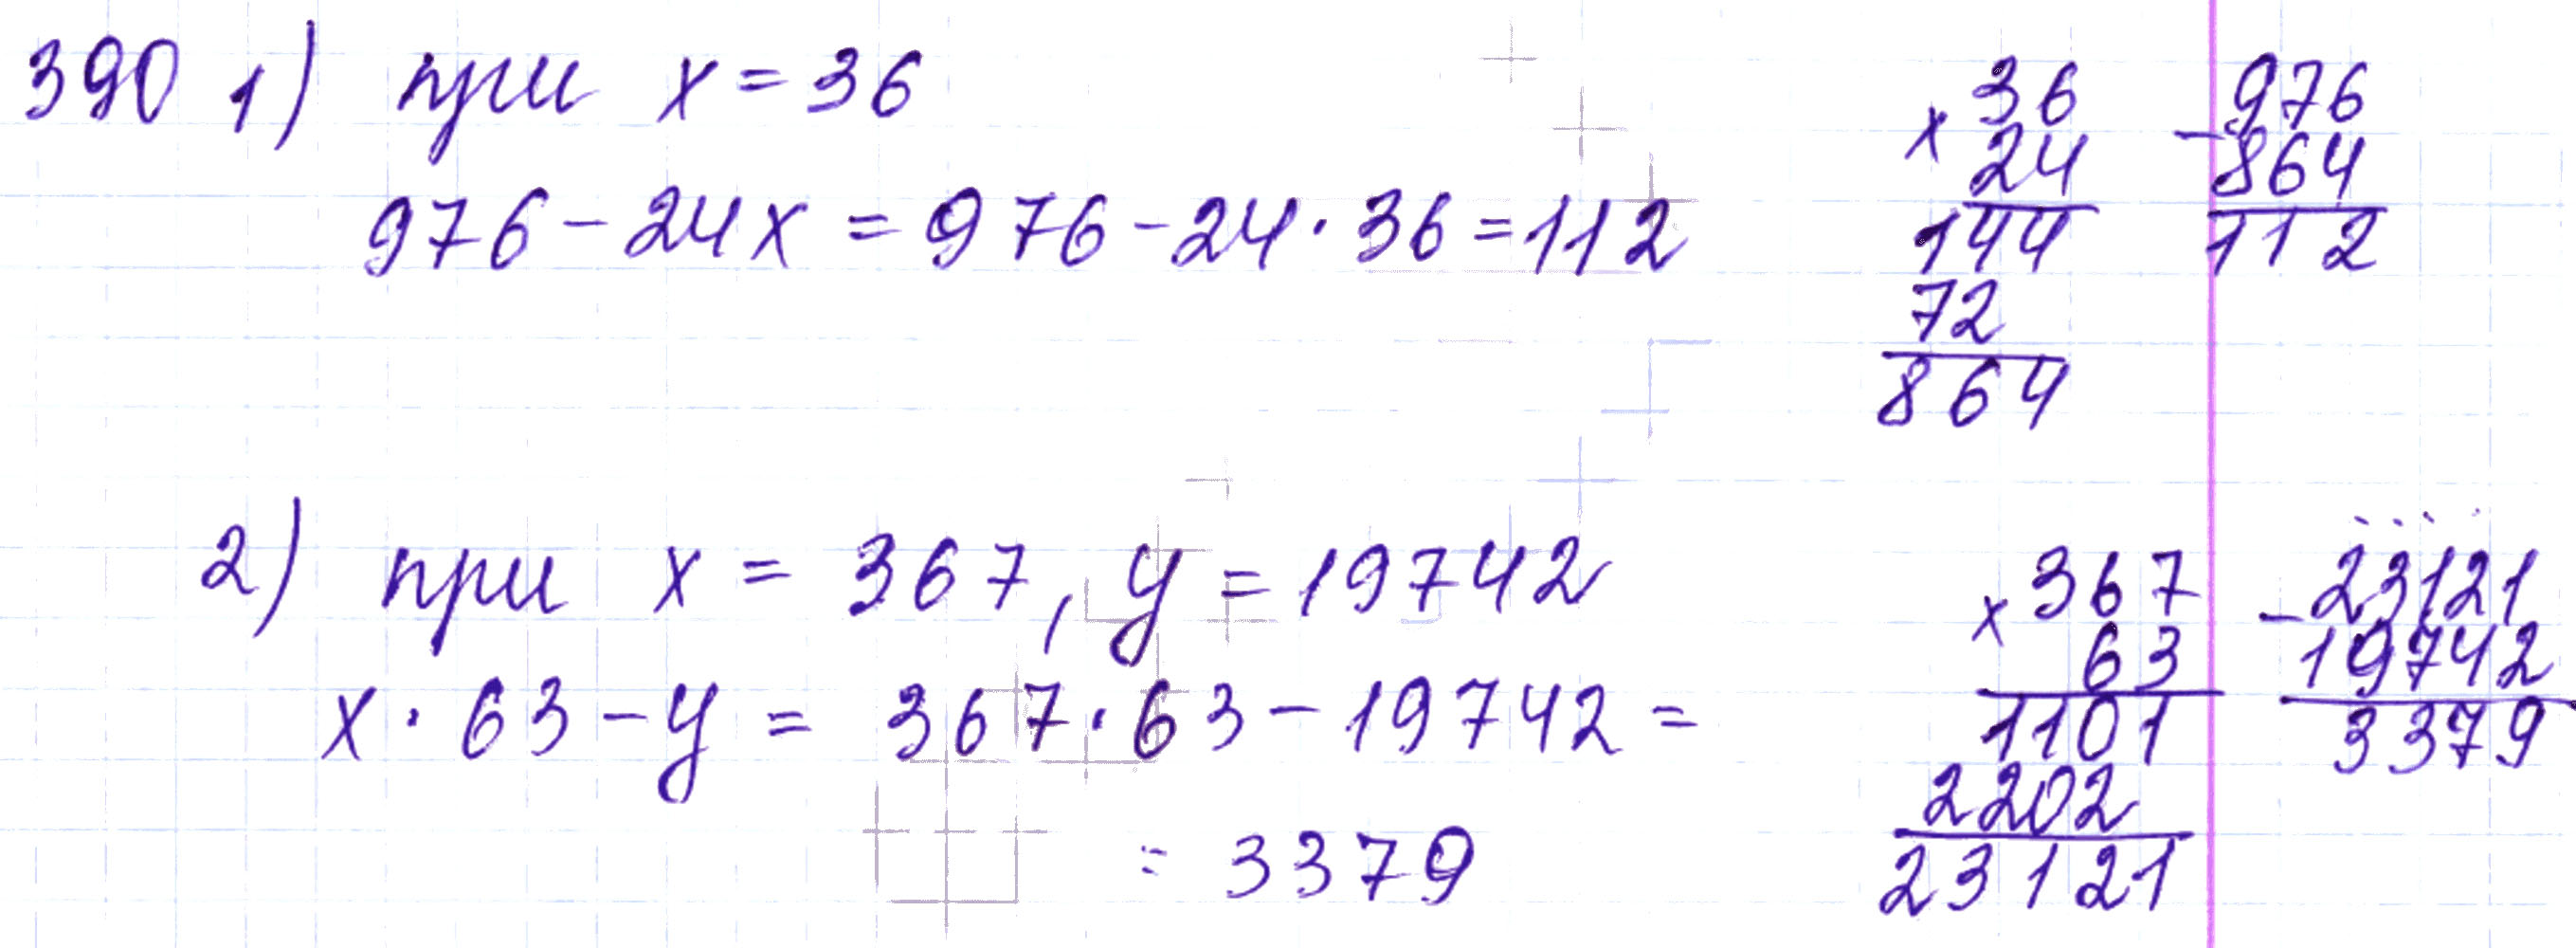 390 1) при x = 36
976 - 24x = 976 - 24 · 36 = 112
× 36
24
144
72
864
- 976
864
112
2) при x = 367, y = 19742
x · 63 - y = 367 · 63 - 19742 =
= 3379
× 367
63
1101
2202
23121
- 23121
19742
3379